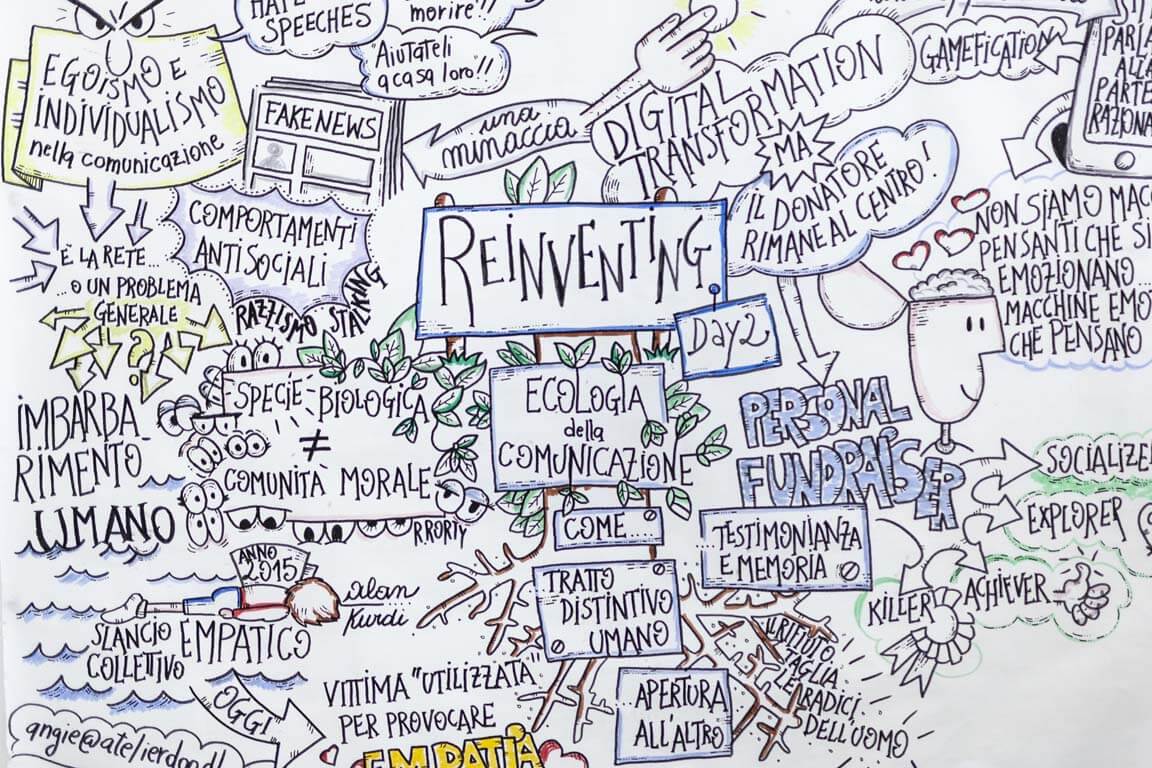 HATE
SPEECHES
morire"!!
"Aiutateli
a casa loro"!!
EGOISMO E
INDIVIDUALISMO
nella comunicazione
FAKE NEWS
una
minaccia
DIGITAL
TRANSFORMATION
MA
IL DONATORE
RIMANE AL CENTRO!
GAMEFICATION
PARLA
ALLA
PARTE
RAZIONA
COMPORTAMENTI
ANTISOCIALI
RAZZISMO
STALKING
È LA RETE...
...O UN PROBLEMA
GENERALE
?
REINVENTING
Day 2
NON SIAMO MACC
PENSANTI CHE SI
EMOZIONANO...
MACCHINE EMO
CHE PENSANO
IMBARBA_
RIMENTO
UMANO
SPECIE BIOLOGICA
≠
COMUNITÀ MORALE
RRORTY
ECOLOGIA
della
COMUNICAZIONE
COME....
TRATTO
DISTINTIVO
UMANO
APERTURA
ALL'ALTRO
PERSONAL
FUNDRAISER
TESTIMONIANZA
E MEMORIA
SOCIALIZE
EXPLORER
ACHIEVER
KILLER
ANNO
2015
alan
Kurdi
SLANCIO EMPATICO
COLLETTIVO
OGGI
VITTIMA "UTILIZZATA"
PER PROVOCARE
EMPATIA
IL RIFIUTO
TAGLIA
LE RADICI
DELL'UOMO